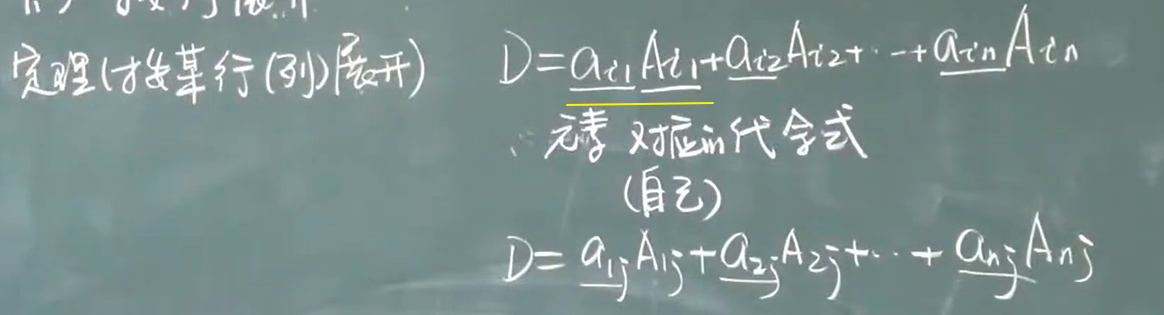 按某行展开
定理(按某行(列)展开) D=ai1Ai1+ai2Ai2+··+ainAin
元素 对应的代余式
(自己)
D=a1jA1j+a2jA2j+··+anjAnj